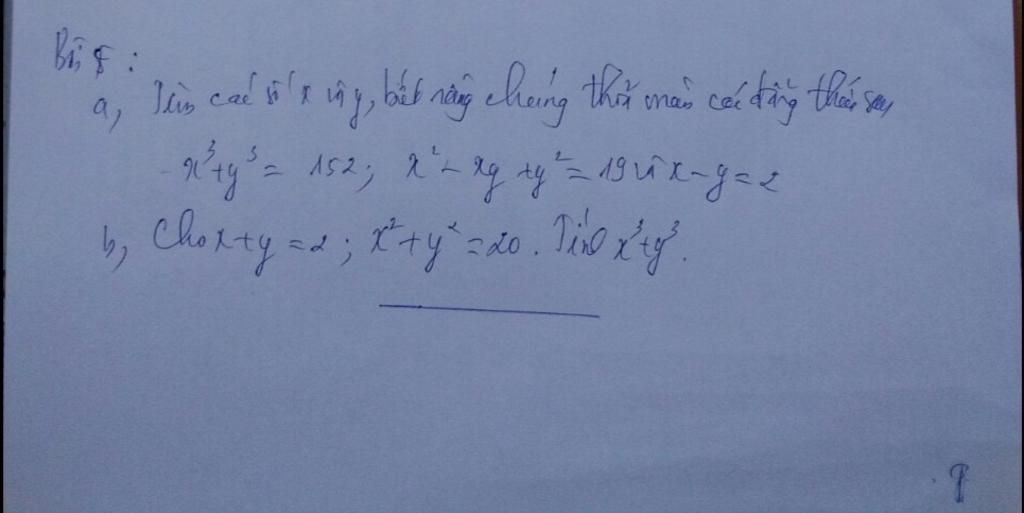 Bài 8:
a, Tìm các số x và y, biết rằng chúng thoả mãn các đẳng thức sau
- x³+y³ = 152; x² - xy + y² = 19 và x-y=2
b, Cho x+y=2; x²+y²=20. Tính x³+y³.